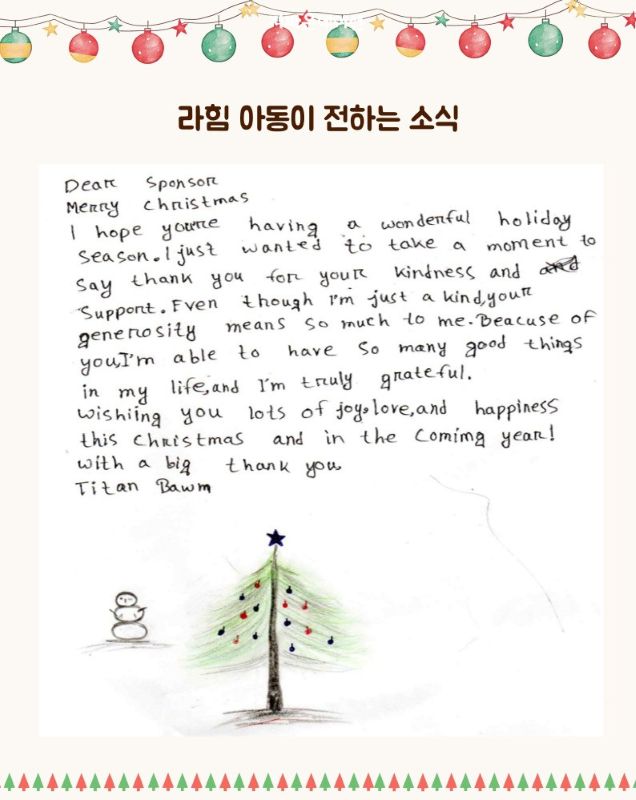 라힘 아동이 전하는 소식
Dear Sponsor
Merry Christmas
I hope youre having a wonderful holiday
season. I just wanted to take a moment to
say thank you for your kindness and and
support. Even though I'm just a kind, your
generosity means so much to me. Beacuse of
you, I'm able to have so many good things
in my life, and I'm truly grateful.
wishiing you lots of joy, love, and happiness
this Christmas and in the Coming year!
with a big thank you
Titan Bawm